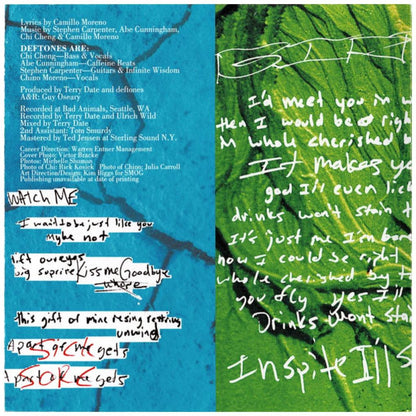 Lyrics by Camillo Moreno
Music by Stephen Carpenter, Abe Cunningham,
Chi Cheng & Camillo Moreno
DEFTONES ARE:
Chi Cheng—Bass & Vocals
Abe Cunningham—Caffeine Beats
Stephen Carpenter—Guitars & Infinite Wisdom
Chino Moreno—Vocals
Produced by Terry Date and deftones
A&R: Guy Oseary
Recorded at Bad Animals, Seattle, WA
Recorded by Terry Date and Ulrich Wild
Mixed by Terry Date
2nd Assistant: Tom Smurdy
Mastered by Ted Jensen at Sterling Sound N.Y.
Career Direction: Warren Entner Management
Cover Photo: Victor Bracke
Photos: Michelle Shuman
Photo of Chi: Rick Kosick Photo of Chino: Julia Carroll
Art Direction/Design: Kim Biggs for SMOG
Publishing unavailable at date of printing
WATCH ME
I want to be just like you
mybe not
lift our eyes
big suprise Kiss me Goodbye
where
this gift of mine resing
unwind
Apart of me gets
SORE
gets
I'd meet you in
then I would be right
whole cherished b
It makes yo
god I'll even lie
drinks wont stain
It's just me I'm bor
now I could be right
whole cherished by t
you fly yes I'll
Drinks wont stai
Inspite I'll s